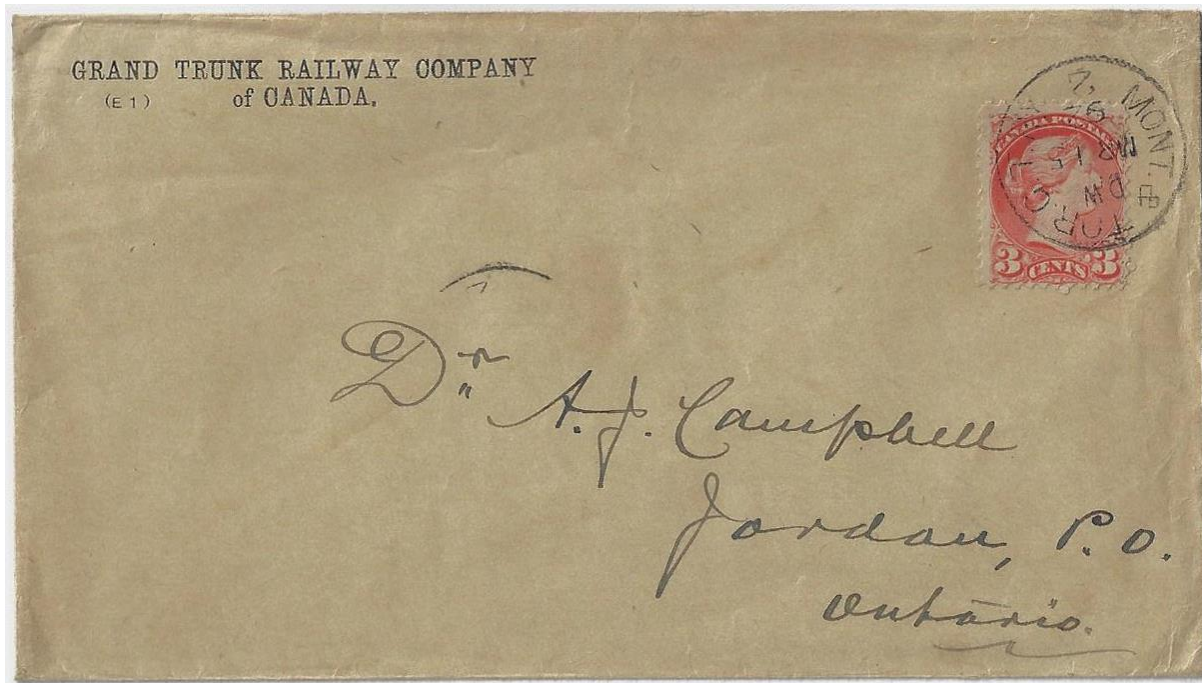 GRAND TRUNK RAILWAY COMPANY
(E 1) of CANADA.
CANADA POSTAGE
3 CENTS 3
MONT. & TOR.
MR 15
Dr. A. J. Campbell
Jordan, P. O.
Ontario.